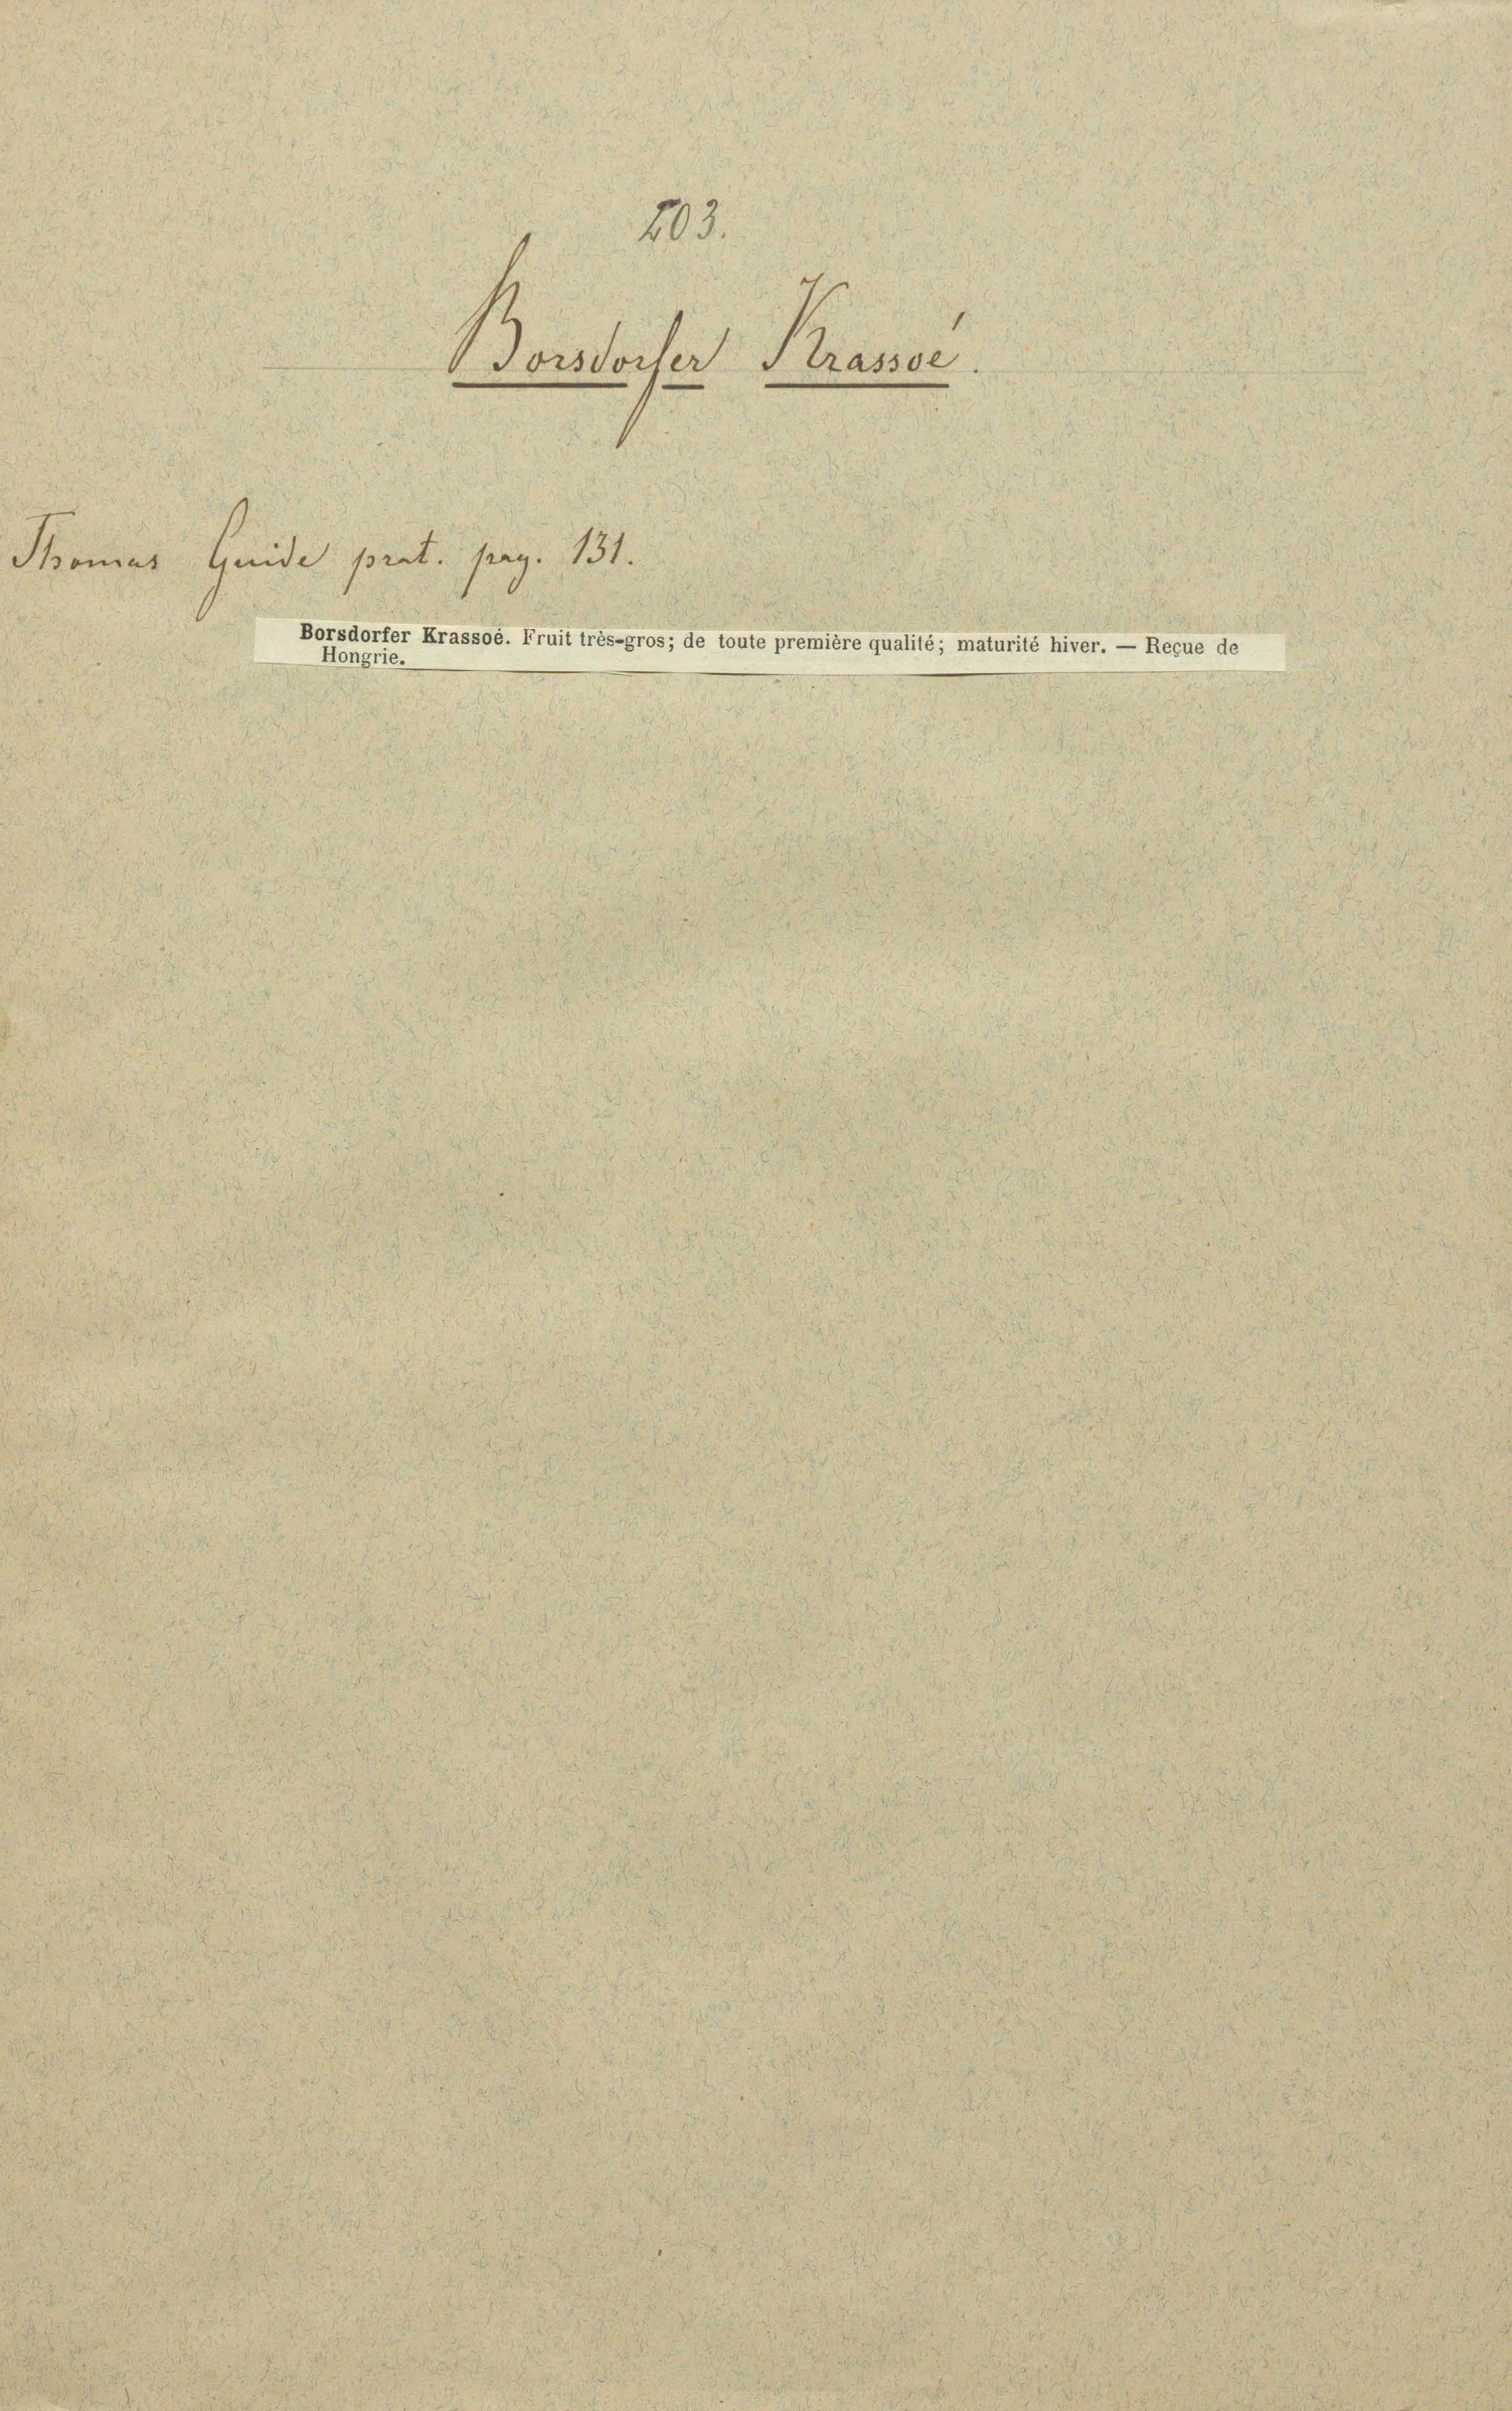 203.
Borsdorfer Krassoé.
Thomas Guide prat. pag. 131.
Borsdorfer Krassoé. Fruit très-gros; de toute première qualité; maturité hiver. — Reçue de
Hongrie.